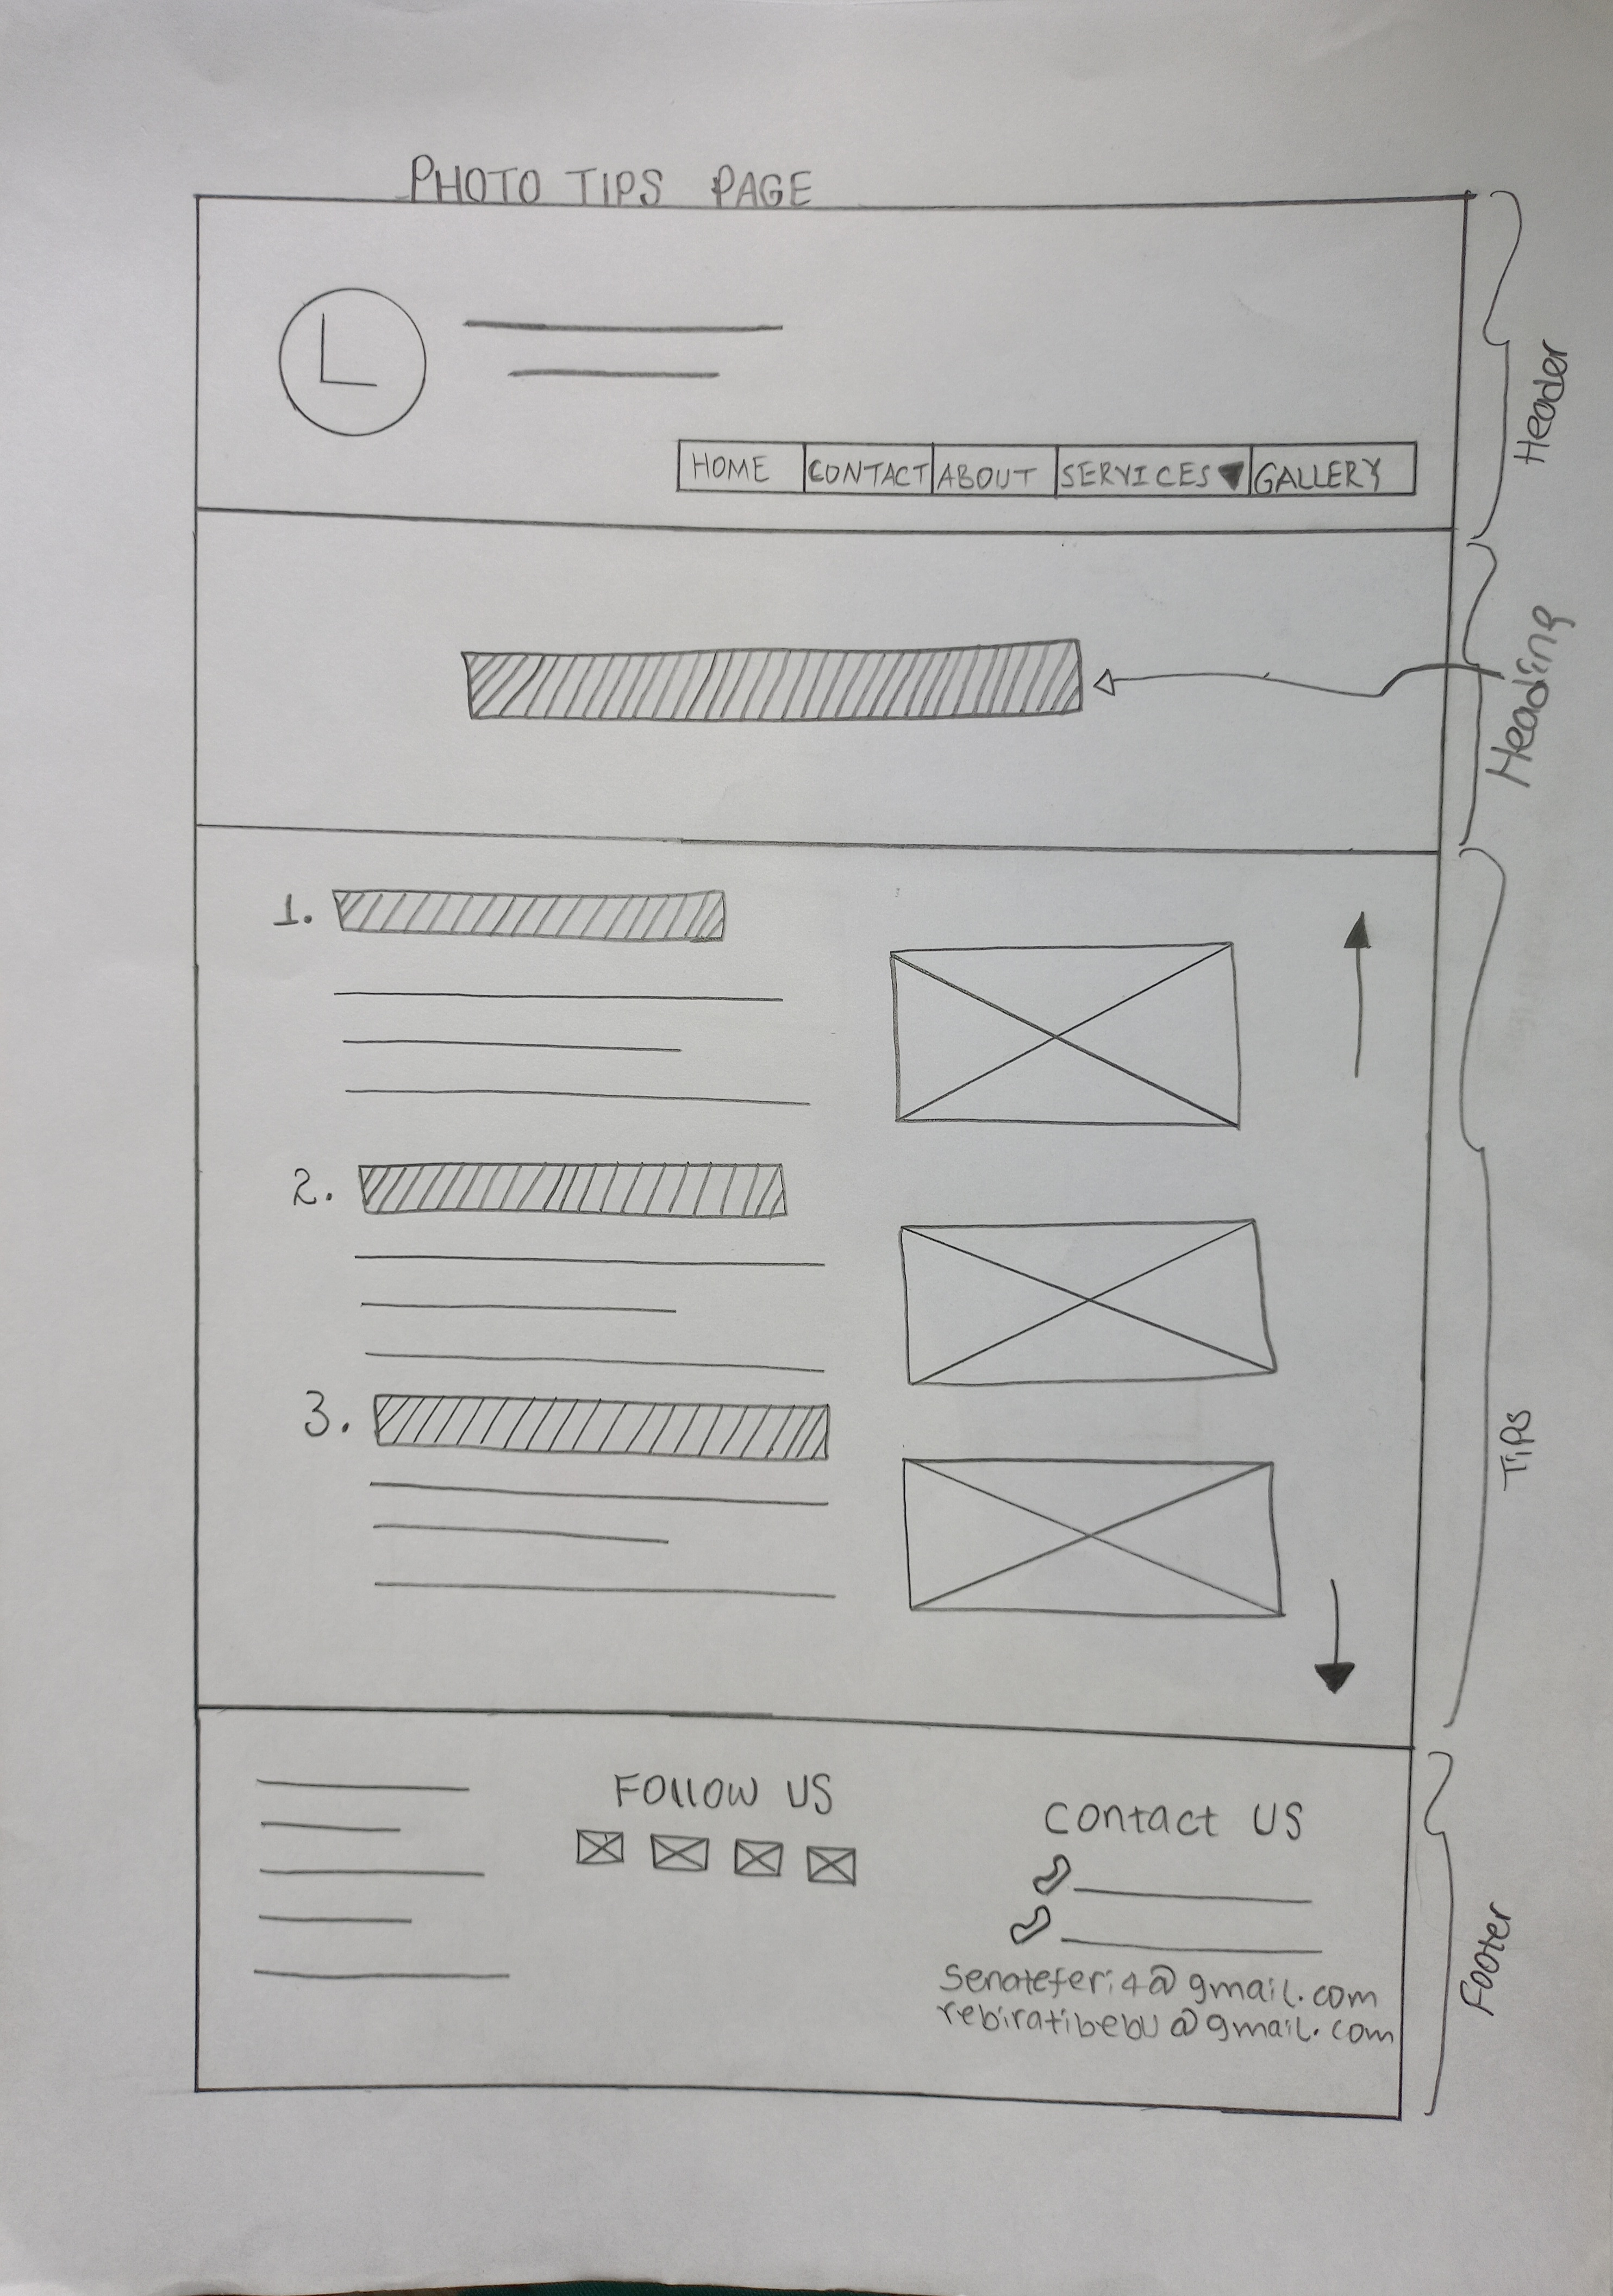 PHOTO TIPS PAGE
L
HOME CONTACT ABOUT SERVICES GALLERY
Header
Heading
1.
2.
3.
Tips
FOllOW US
Contact US
Senateferi4@gmail.com
rebiratibebu@gmail.com
Footer